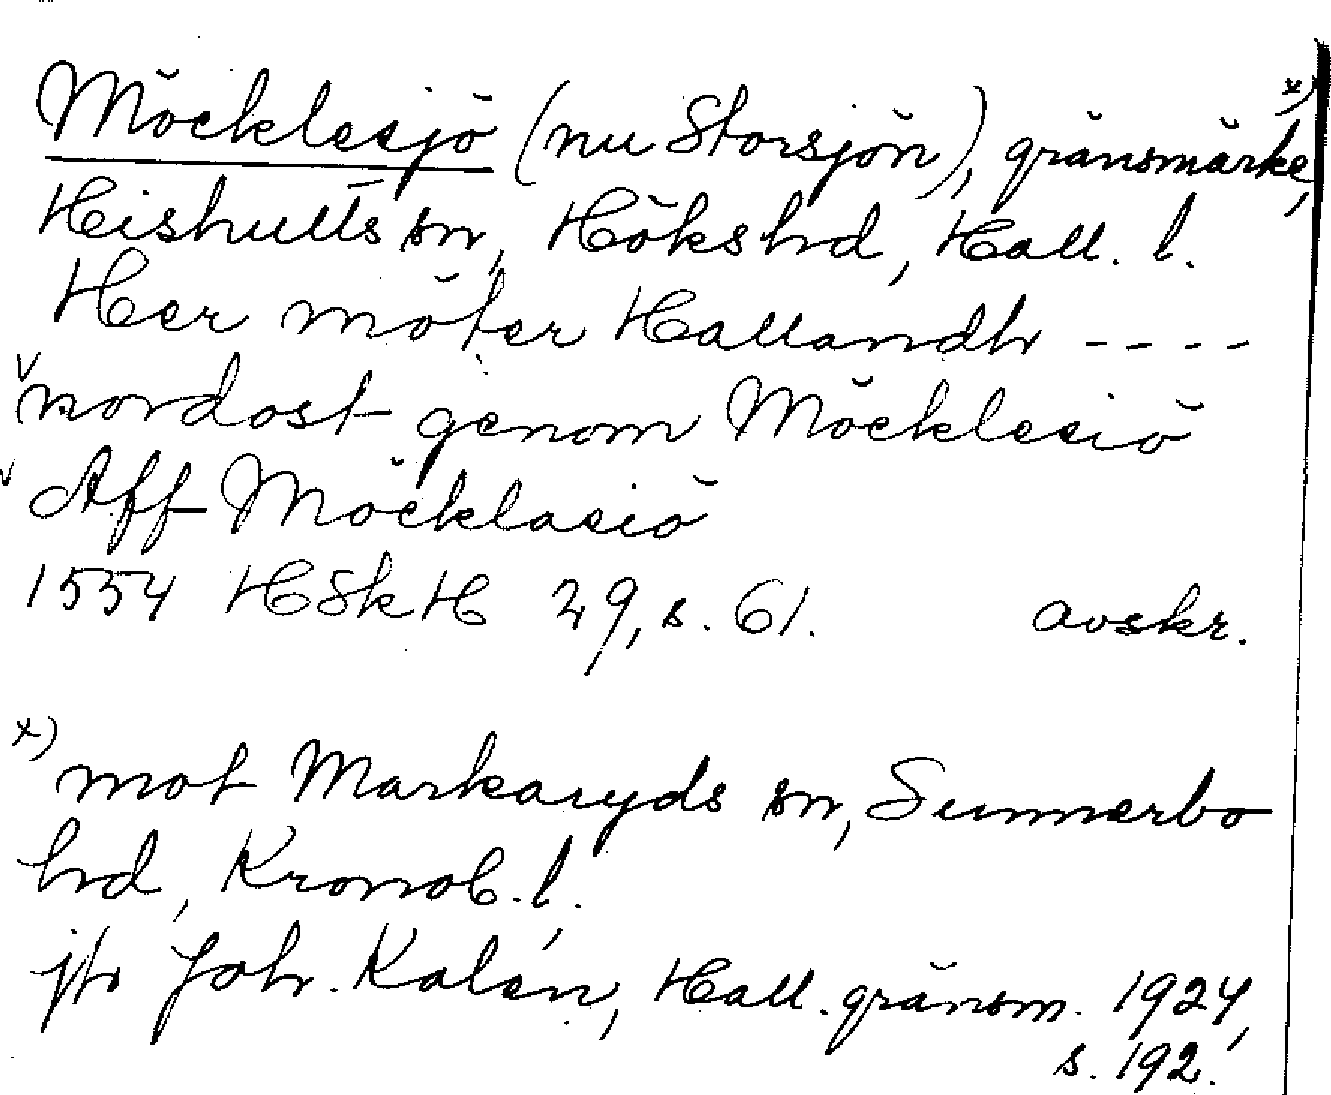 Möcklesjö (nu Storsjön), gränsmärke, x)
Hishults sn, Höks hrd, Hall. l.
Heer möter Hallandh ----
nordost genom Möcklesiö
Aff Möcklasiö
1554 HSkH 29, s. 61. avskr.
x) mot Markaryds sn, Sunnerbo
hrd, Kronob. l.
jfr Joh. Kalén, Hall. gränsm. 1924,
s. 192.